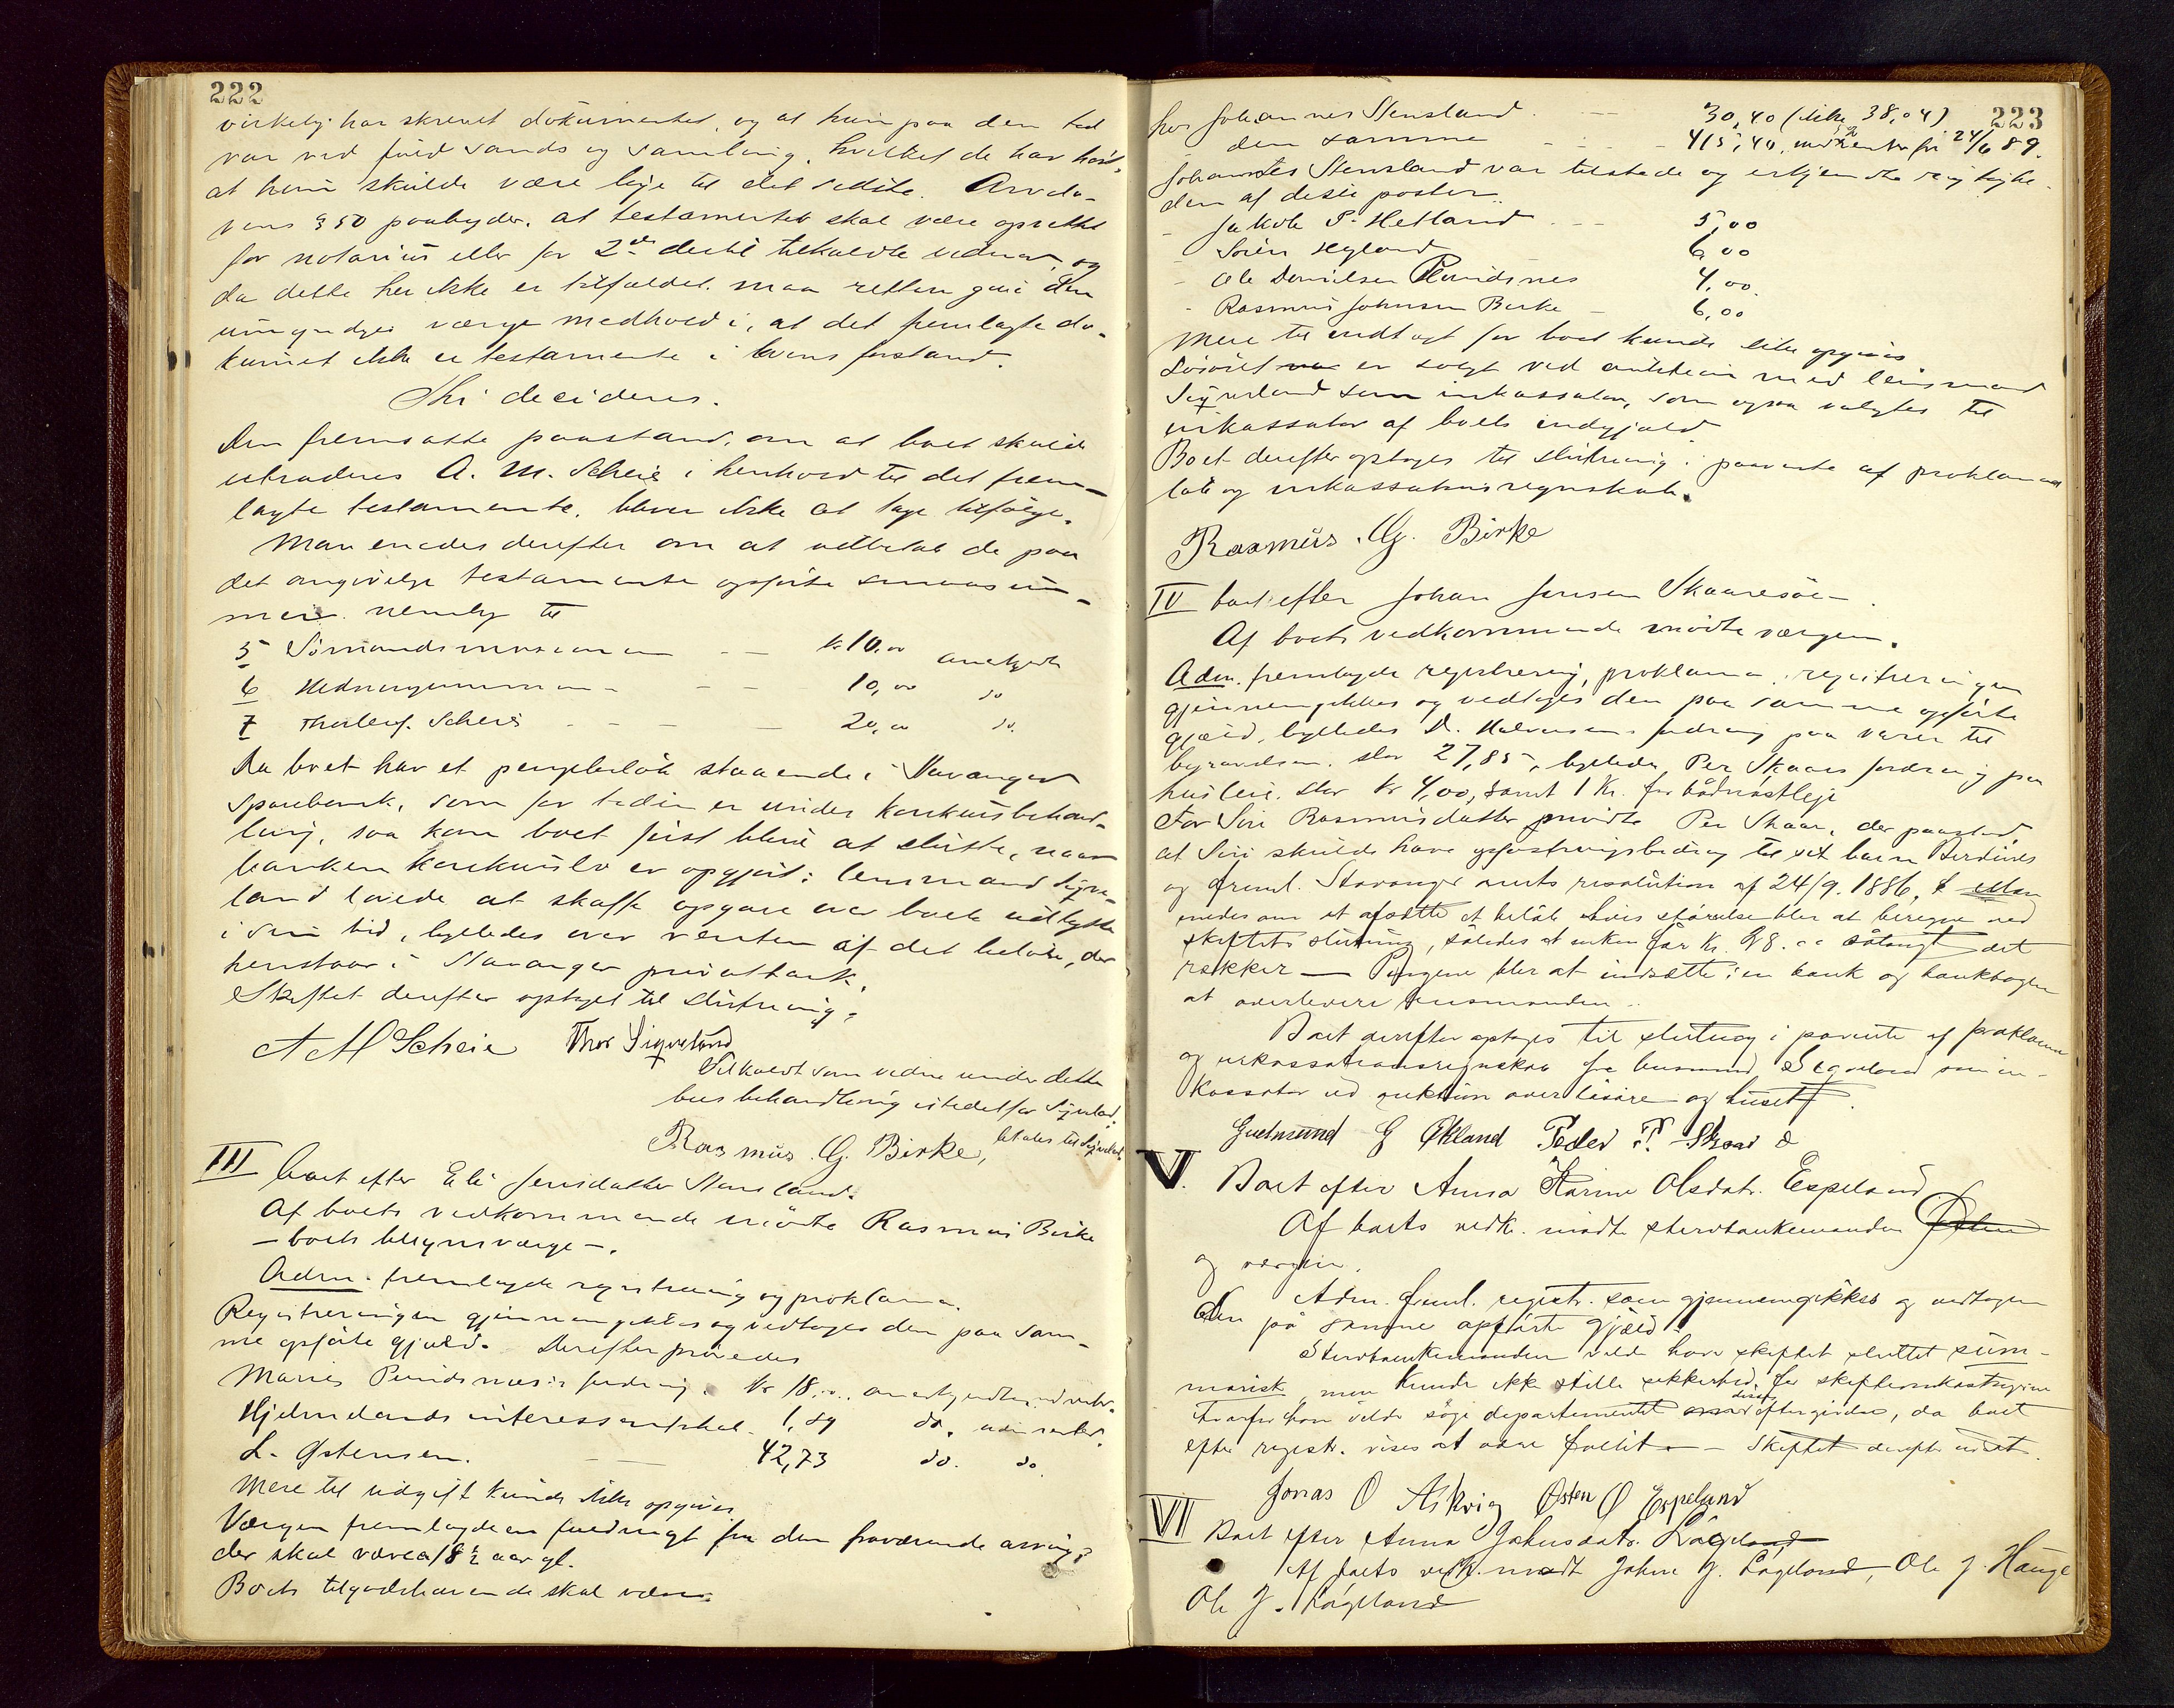 222
virkelig har skrevet dokumentet, og at hun paa den tid
var ved fuld sands og samling, hvilket de har hørt,
at hun skulde være lige til det sidste. Arvelo-
vens § 50 paabyder, at testamentet skal være oprettet
for notarius eller for 2de dertil tilkaldte vidner, og
da dette her ikke er tilfældet, maa retten give den
umyndiges værge medhold i, at det fremlagte do-
kument ikke er testamente i lovens forstand.
Thi decideres.
Den fremsatte paastand, om at boet skulde
extraderes A. M. Scheie i henhold til det frem-
lagte testamente, bliver ikke at tage tilfølge.
Man enedes derefter om at udbetale de paa
det angivelige testamente opførte smaasum-
mer, nemlig til
5 Sømandsmissionen — — kr 10,00 anerkjendt
6 Hedningemissionen - - - 10,00 do
7 Thorleif Scheie - - - 20,00 do.
Da boet har et pengebeløb staaende i Stavanger
Sparebank, som for tiden er under konkursbehand-
ling, saa kan boet først blive at slutte, naar
banken konkursbo er opgjort; lensmand Sigve-
land lovede at skaffe opgave over boets udlodd
i sin tid, ligeledes over renten af det beløb, der
henstaar i Stavanger privatbank.
Skiftet derefter optaget til slutning.
A M Scheie Thor Sigveland
Tilkaldt som vidne under dette
boes behandling istedetfor Sigveland.
Rasmus G. Birke,
III boet efter Eli Jensdatter Stensland.
Af boets vedkommende mødte Rasmus Birke
— boets tilsynsværge —.
Adm. fremlagde registrering og proklama.
Registreringen gjennemgikkes og vedtoges den paa sam-
me opførte gjæld. Derefter prøvedes
Maries fordring. kr 18,00. anerkjendtes
Hjelmelands interessentskab. 1,89 do. uden renter.
L. Østensen. — — 42,73 do. do.
Mere til udgift kunde ikke opgives.
Værgen fremlagde en fuldmagt fra den fraværende arving,
der skal være 18 ½ aar gl.
Boets tilgodehavende skal være
223
hos Johannes Stensland. — 30,40 (ikke 38,04)
- den samme - - - 415,40, med renter fri 24/6 89.
Johannes Stensland var tilstede og erkjendte rigtighe-
den af disse poster.
- Jakob P. Hetland - - - 5,00
- Søren Hyland 6,00
- Ole Danielsen 4,00
- Rasmus Johnsen Birke - 6,00
Mere til indtægt for boet kunde ikke opgives
Løsøret er solgt ved auktion med lensmand
Sigveland som inkassator, som ogsaa valgtes til
inkassator af boets indgjæld.
Boet derefter optages til slutning i paavente af proklamaud-
løb og inkassationsregnskab.
Rasmus. G. Birke
IV boet efter Johan Jensen Skaaresøe.
Af boets vedkommende mødte værgen.
Adm. fremlagde registrering, proklama, registreringen
gjennemgikkes og vedtoges den paa samme opførte
gjæld, ligeledes D. Halvorsens fordring paa varer til
begravelsen, stor 27,85, ligeledes Per Skaars fordring paa
husleie, stor kr 4,00, samt 1 Kr. for bådnøstleje
For Siri Rasmusdatter mødte Per Skaar, der paastod
at Siri skulde have opfostringsbidrag til sit barn
og freml. Stavanger amts resolution af 24/9. 1886. Man
enedes om at afsætte et beløb hvis størrelse blir at beregne ved
skiftets slutning, således at enken får Kr. 98.00 sålangt det
rækker — Pengene blir at indsætte i en bank og bankbogen
at overlevere lensmanden.
Boet derefter optages til slutning i pavente af proklama
og inkassationsregnskab fra lensmand Sigveland som in-
kassator ved auktion over løsøre og huset.
Gudmund G Økland Peder P. Skaar
V. Boet efter Anna Karine Olsdatr. Espeland
Af boets vedk. mødte stervboenkemanden
og værgen.
Adm. freml. registr. som gjennemgikkes og vedtoges
den på samme opførte gjæld
Stervboenkemanden vilde have skiftet sluttet sum-
marisk men kunde ikke stille sikkerhed for skifteomkostningerne
hvorfor han vilde søge departementet disse eftergivne, da boet
efter registr. vises at være fallit. — Skiftet derefter udsat
Jonas O Askvig Østen O Espeland
VI Boet efter Anna Johnsdatr. Lågeland
Af boets vedk. mødt John J. Lågeland, Ole J. Hauge
Ole J. Lågeland